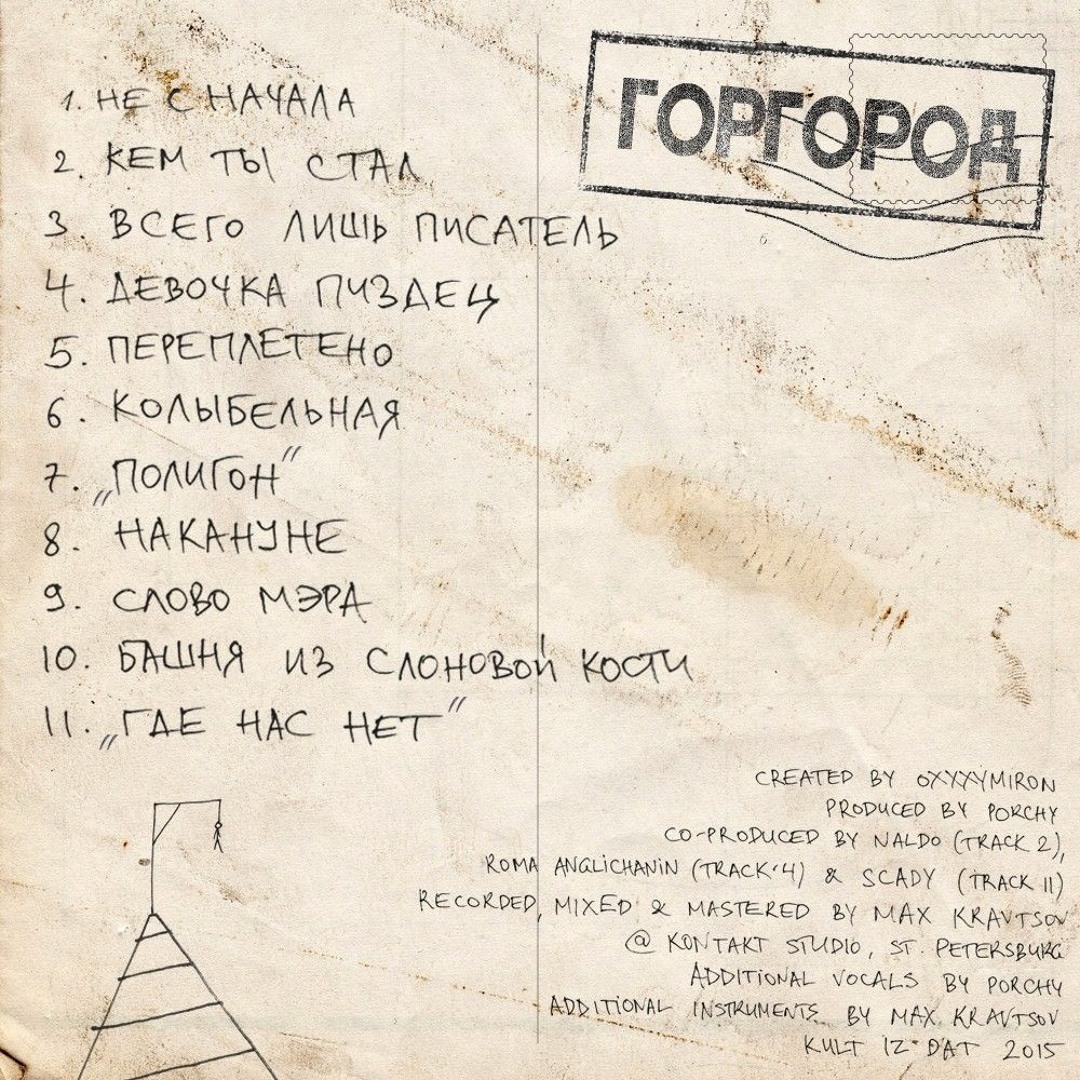 ГОРГОРОД
1. НЕ С НАЧАЛА
2. КЕМ ТЫ СТАЛ
3. ВСЕГО ЛИШЬ ПИСАТЕЛЬ
4. ДЕВОЧКА ПИЗДЕЦ
5. ПЕРЕПЛЕТЕНО
6. КОЛЫБЕЛЬНАЯ
7. „ПОЛИГОН"
8. НАКАНУНЕ
9. СЛОВО МЭРА
10. БАШНЯ ИЗ СЛОНОВОЙ КОСТИ
11. „ГДЕ НАС НЕТ"
CREATED BY OXXXYMIRON
PRODUCED BY PORCHY
CO-PRODUCED BY NALDO (TRACK 2),
ROMA ANGLICHANIN (TRACK 4) & SCADY (TRACK 11)
RECORDED, MIXED & MASTERED BY MAX KRAVTSOV
@ KONTAKT STUDIO, ST. PETERSBURG
ADDITIONAL VOCALS BY PORCHY
ADDITIONAL INSTRUMENTS BY MAX KRAVTSOV
KULT IZ DAT 2015